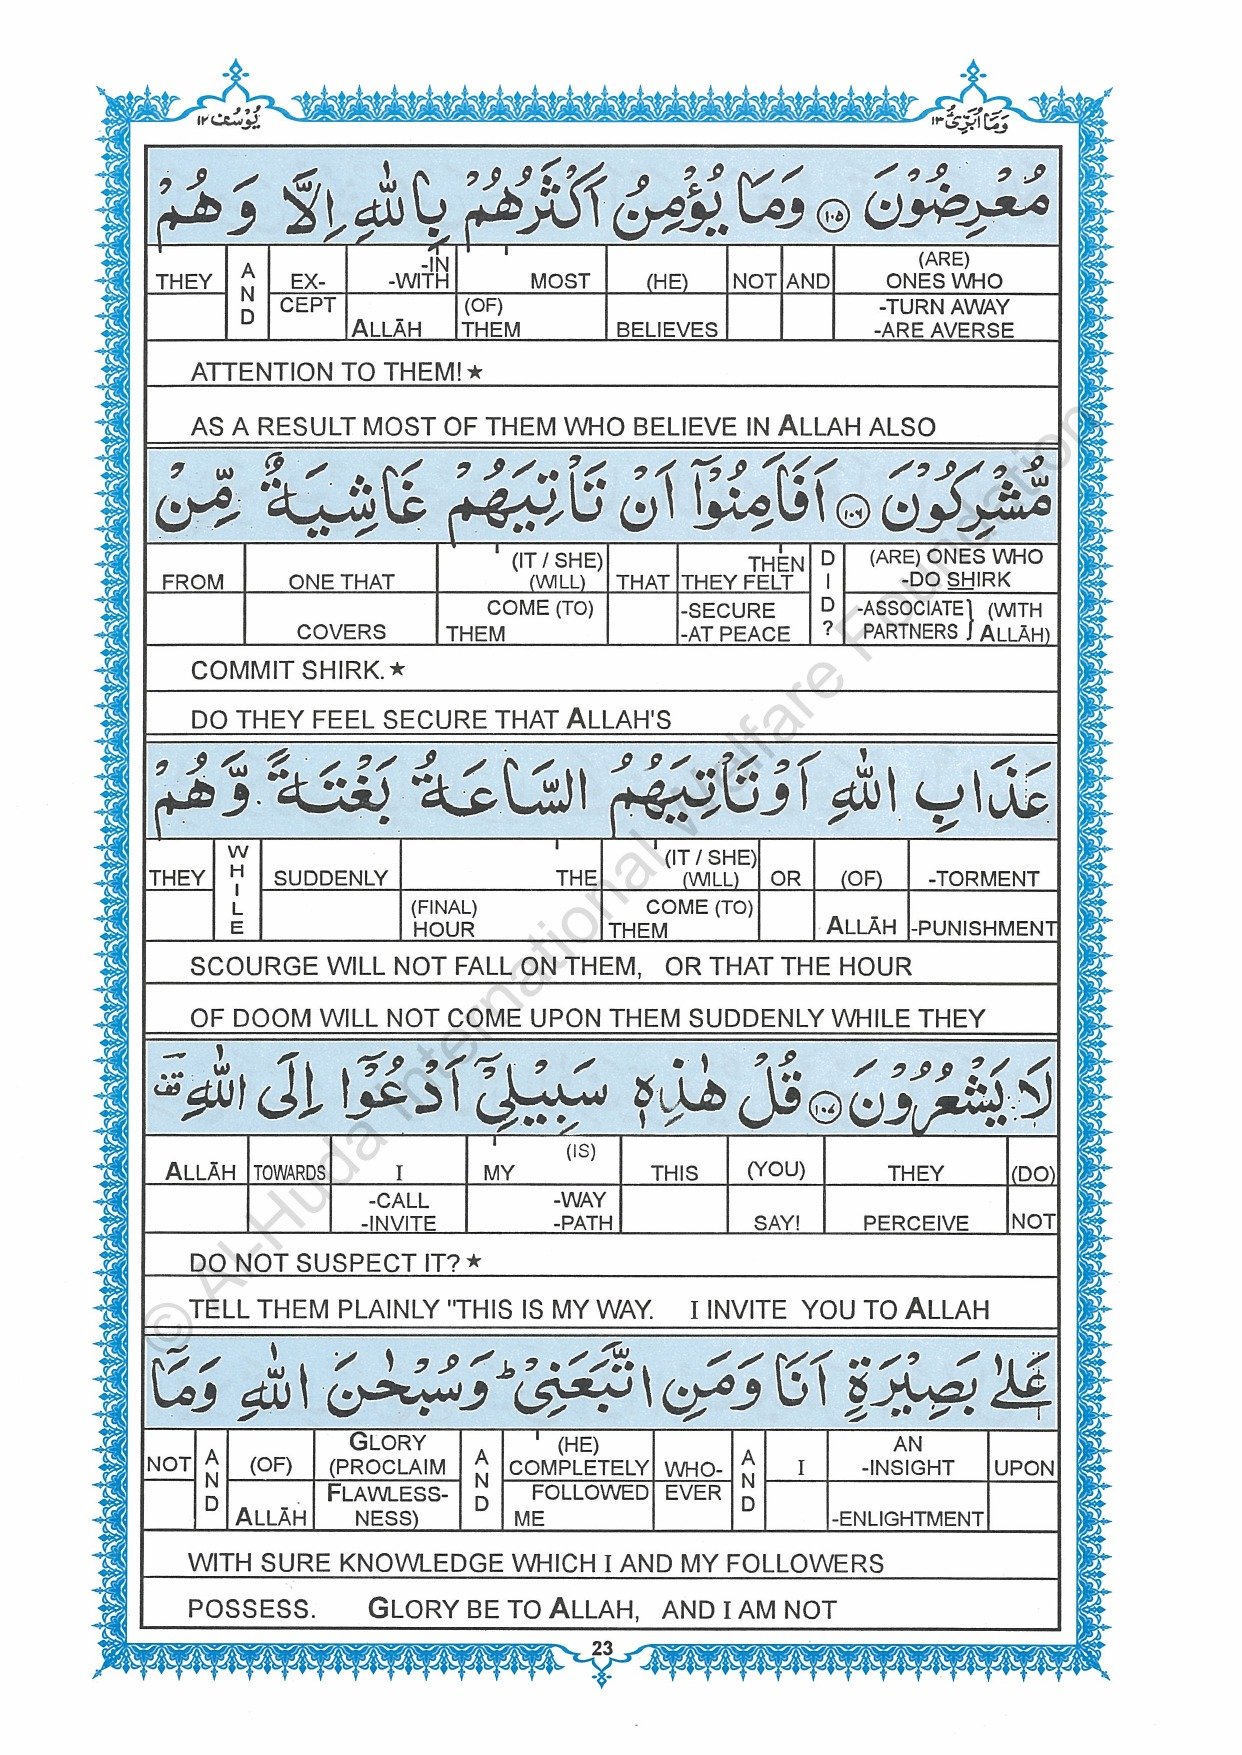 وَمَآ اُبَرِّئُ ١٣
يُوْسُف ١٢
مُعْرِضُوْنَ ١٠٥ وَمَا يُؤْمِنُ اَكْثَرُهُمْ بِاللّٰهِ اِلَّا وَهُمْ
THEY AND EX- -IN -WITH MOST (HE) NOT AND (ARE) ONES WHO
CEPT ALLĀH (OF) THEM BELIEVES -TURN AWAY -ARE AVERSE
ATTENTION TO THEM! ★
AS A RESULT MOST OF THEM WHO BELIEVE IN ALLAH ALSO
مُّشْرِكُوْنَ ١٠٦ اَفَاَمِنُوْٓا اَنْ تَاْتِيَهُمْ غَاشِيَةٌ مِّنْ
FROM ONE THAT (IT / SHE) (WILL) THAT THEN THEY FELT DID? (ARE) ONES WHO -DO SHIRK
COVERS COME (TO) THEM -SECURE -AT PEACE -ASSOCIATE PARTNERS } (WITH ALLĀH)
COMMIT SHIRK. ★
DO THEY FEEL SECURE THAT ALLAH'S
عَذَابِ اللّٰهِ اَوْ تَاْتِيَهُمُ السَّاعَةُ بَغْتَةً وَّهُمْ
THEY WHILE SUDDENLY THE (IT / SHE) (WILL) OR (OF) -TORMENT
(FINAL) HOUR COME (TO) THEM ALLĀH -PUNISHMENT
SCOURGE WILL NOT FALL ON THEM, OR THAT THE HOUR
OF DOOM WILL NOT COME UPON THEM SUDDENLY WHILE THEY
لَا يَشْعُرُوْنَ ١٠٧ قُلْ هٰذِهٖ سَبِيْلِيْٓ اَدْعُوْٓا اِلَى اللّٰهِ قف
ALLĀH TOWARDS I MY (IS) THIS (YOU) THEY (DO)
-CALL -INVITE -WAY -PATH SAY! PERCEIVE NOT
DO NOT SUSPECT IT? ★
TELL THEM PLAINLY "THIS IS MY WAY. I INVITE YOU TO ALLAH
عَلٰى بَصِيْرَةٍ اَنَا وَمَنِ اتَّبَعَنِيْ ط وَسُبْحٰنَ اللّٰهِ وَمَآ
NOT AND (OF) GLORY (PROCLAIM AND (HE) COMPLETELY WHO- AND I AN -INSIGHT UPON
ALLĀH FLAWLESS- NESS) FOLLOWED ME EVER -ENLIGHTMENT
WITH SURE KNOWLEDGE WHICH I AND MY FOLLOWERS
POSSESS. GLORY BE TO ALLAH, AND I AM NOT
23
© Al-Huda International Welfare Foundation